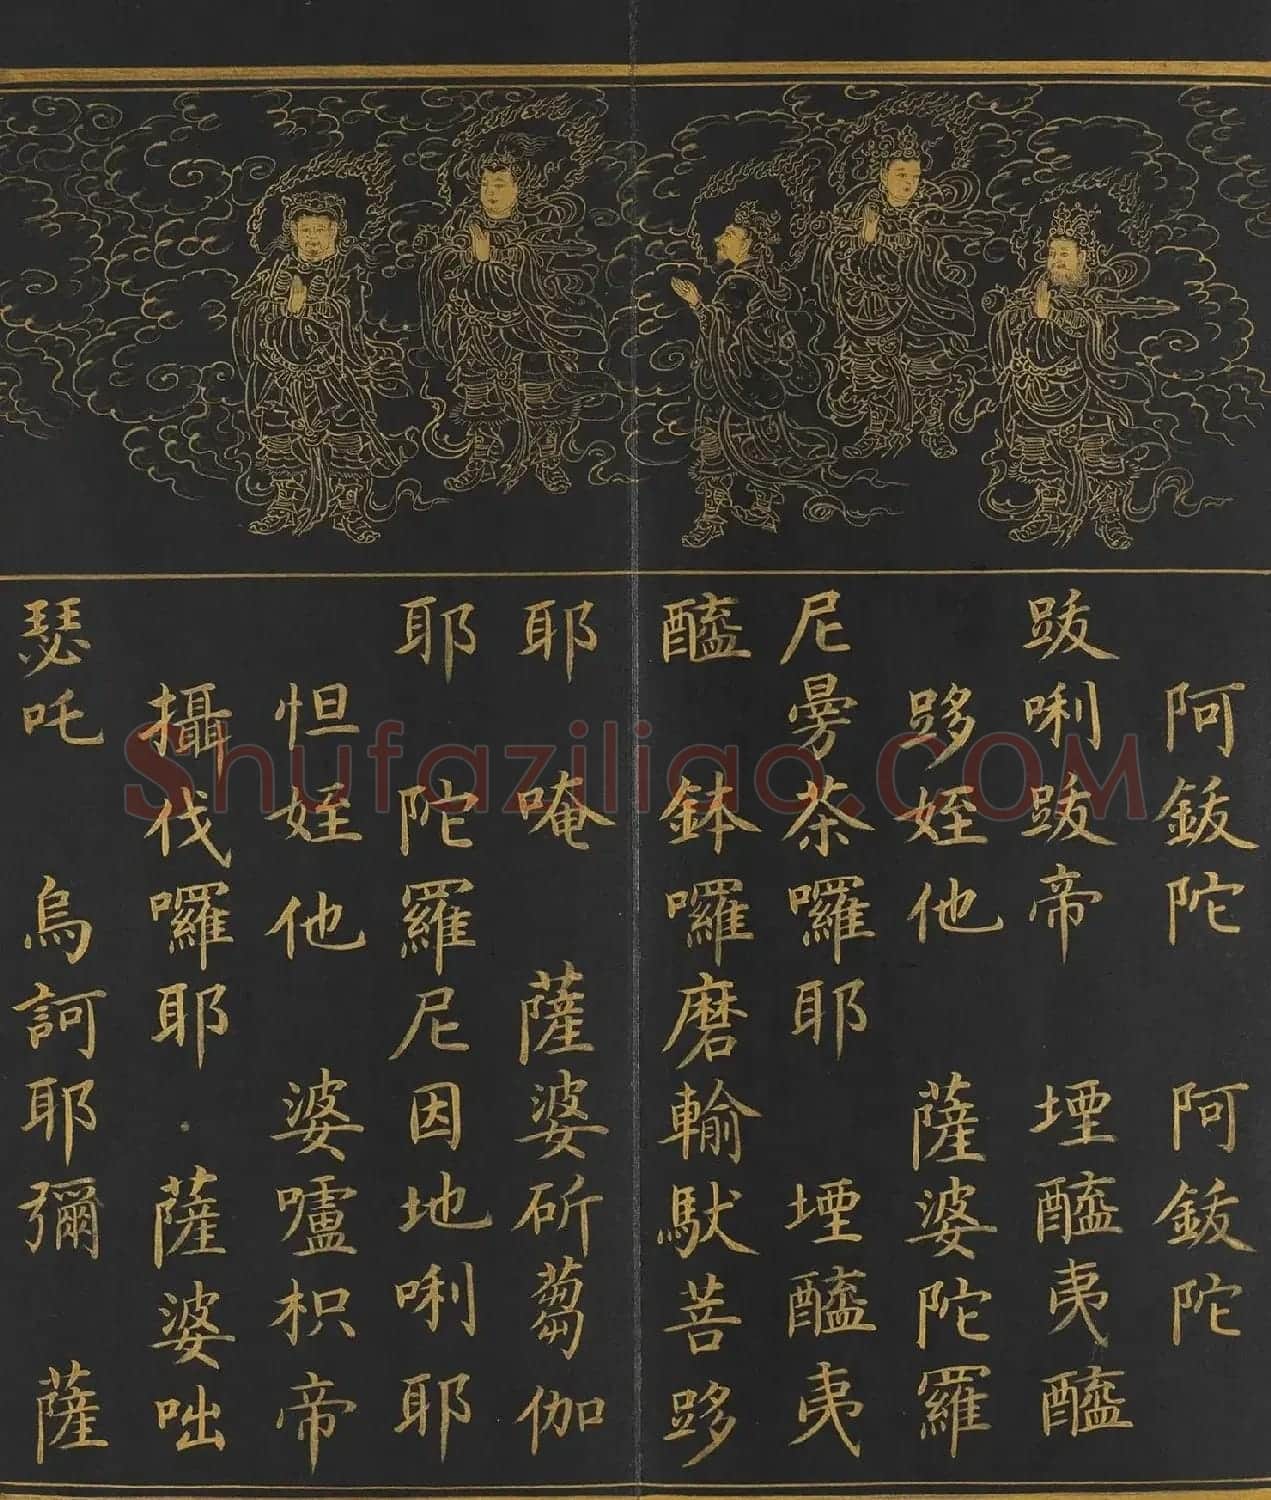 阿鈸陀　阿鈸陀
跋唎跋帝　堙醯夷醯
跢姪他　薩婆陀羅
尼曼荼囉耶　堙醯夷
醯　鉢囉磨輸馱菩跢
耶　唵　薩婆斫蒭伽
耶　陀羅尼因地唎耶
怛姪他　婆嚧枳帝
攝伐囉耶　薩婆咄
瑟吒　烏訶耶彌　薩
Shufaziliao.COM